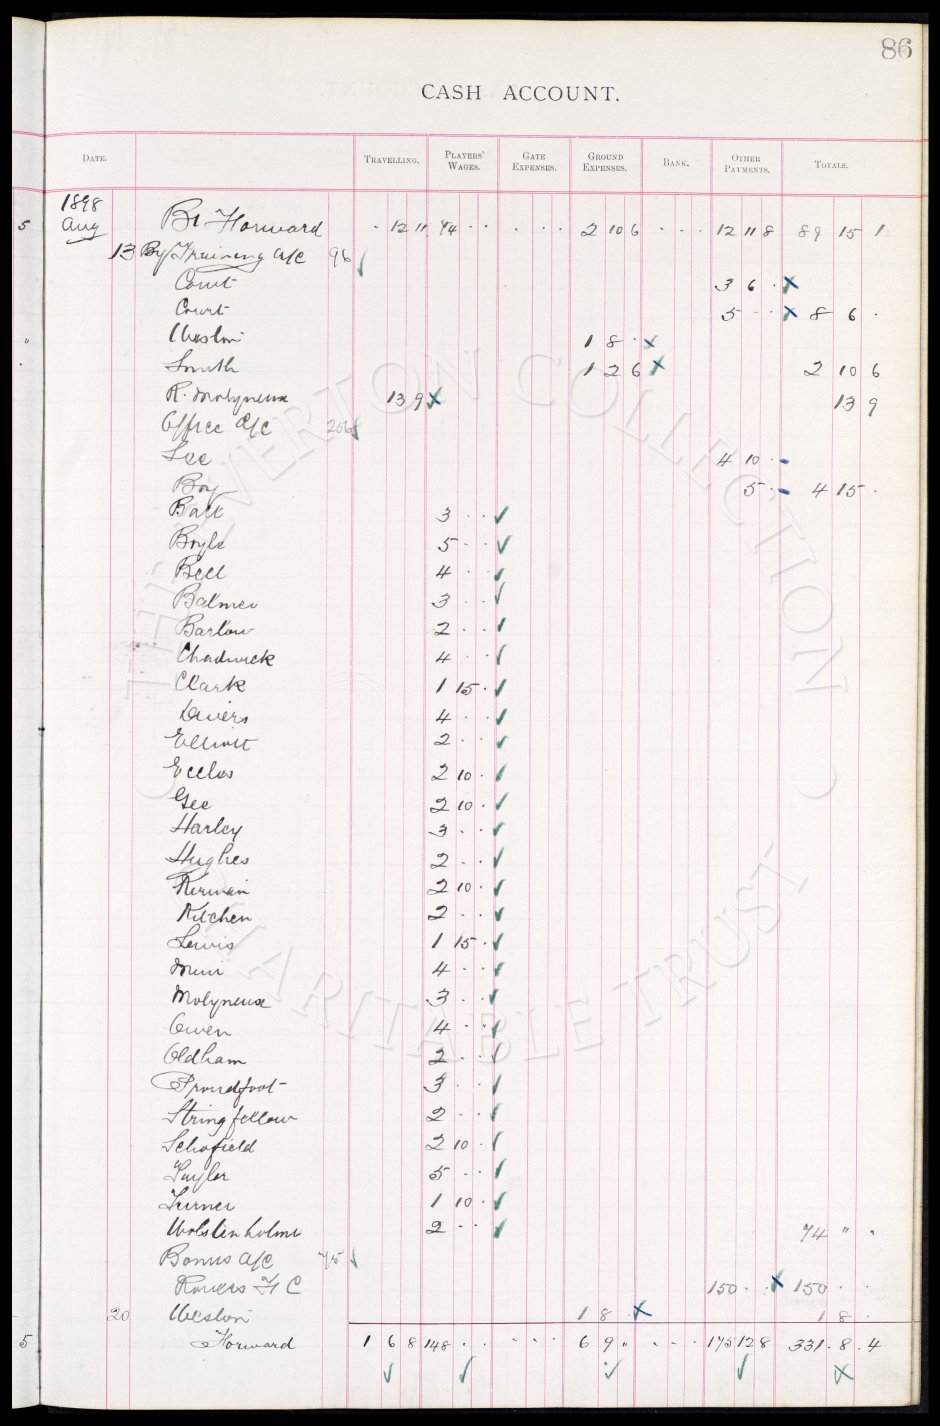 86
CASH ACCOUNT.
DATE. TRAVELLING. PLAYERS' WAGES. GATE EXPENSES. GROUND EXPENSES. BANK. OTHER PAYMENTS. TOTALS.
1898
5 Aug Bt Forward · 12 11 74 · · · · · 2 10 6 · · · 12 11 8 89 15 1
13 By Training a/c 96 ✓
Court 3 6 · x
Court 5 · · x 8 6 ·
Weston 1 8 · x
Smith 1 2 6 x 2 10 6
R. Molyneux 13 9 x 13 9
Office a/c 256 ✓
Lee 4 10 · -
Boy 5 · - 4 15 ·
Balt 3 · · ✓
Boyle 5 · · ✓
Bell 4 · · ✓
Balmer 3 · · ✓
Barlow 2 · · ✓
Chadwick 4 · · ✓
Clark 1 15 · ✓
Davies 4 · · ✓
Elliott 2 · · ✓
Eccles 2 10 · ✓
Gee 2 10 · ✓
Harley 3 · · ✓
Hughes 2 · · ✓
Kirwain 2 10 · ✓
Kitchen 2 · · ✓
Lewis 1 15 · ✓
Muir 4 · · ✓
Molyneux 3 · · ✓
Owen 4 · · ✓
Oldham 2 · · ✓
Proudfoot 3 · · ✓
Stringfellow 2 · · ✓
Schofield 2 10 · ✓
Taylor 5 · · ✓
Turner 1 10 · ✓
Wolstenholme 2 · · ✓ 74 " "
Bonus a/c 75 ✓
Rovers F C 150 · · x 150 · ·
20 Weston 1 8 · x 1 8 ·
5 Forward 1 6 8 148 · · · · · 6 9 " · · · 175 12 8 331 · 8 · 4
✓ ✓ ✓ ✓ x
THE EVERTON COLLECTION
CHARITABLE TRUST